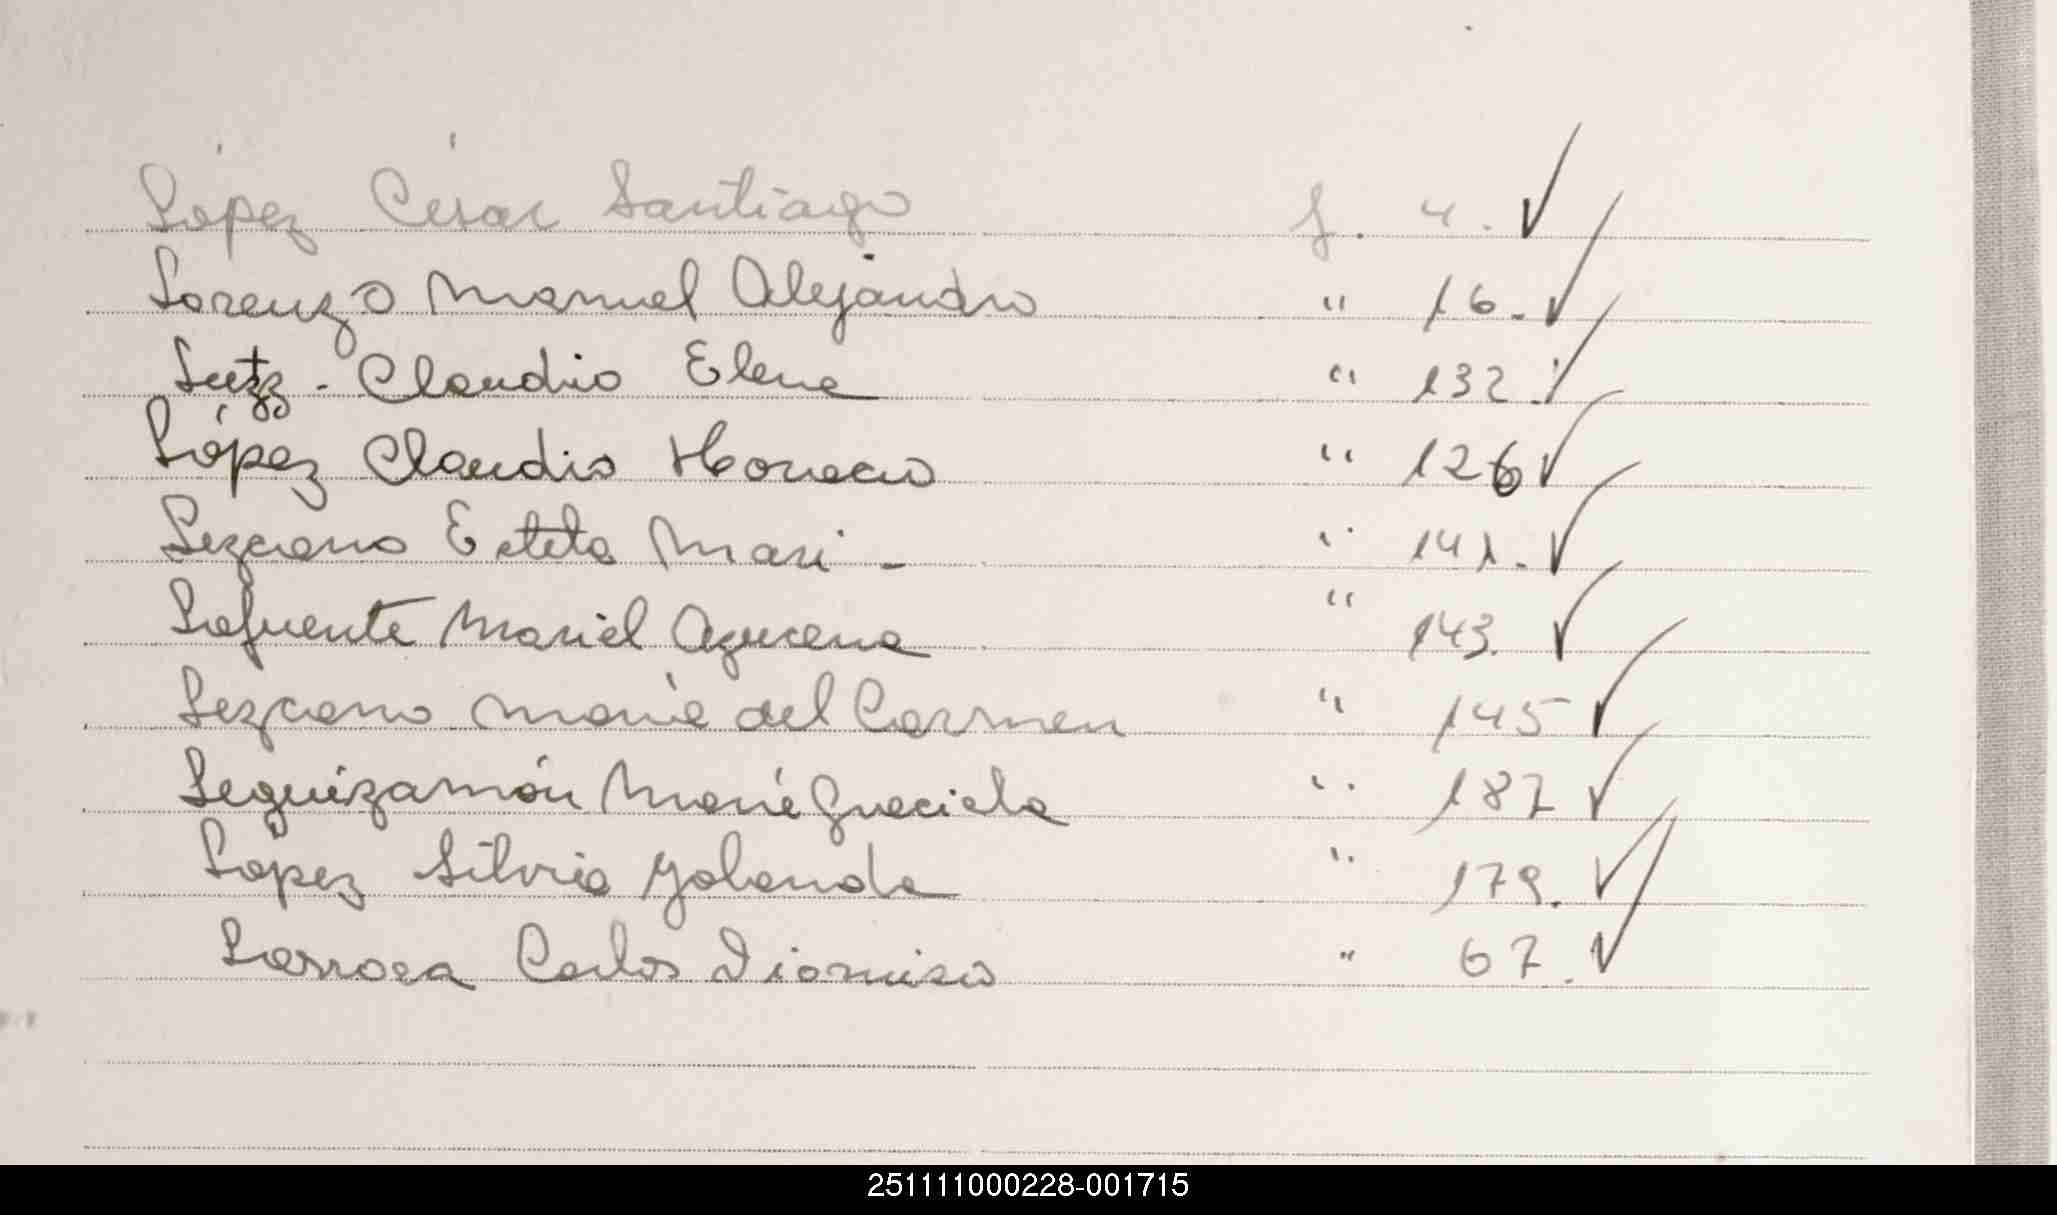 López César Santiago f. 4.
Lorenzo Manuel Alejandro " 16.
Claudia Elena " 132.
López Claudio Horacio " 126
Lezcano Estela Mari - " 141.
Lafuente Mariel Azucena " 143.
Lezcano María del Carmen " 145
Leguizamón María Graciela " 187
López Silvia Yolanda " 179.
Larroca Carlos Dionisio " 67.
251111000228-001715